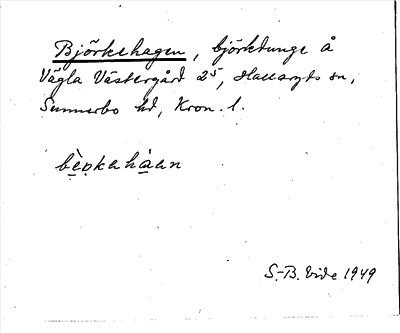 Björkehagen, björkdunge å
Vägla Västergård 2⁵, Hallaryds sn,
Sunnerbo hd, Kron. l.
bèpkahàan
S.-B. Vide 1949